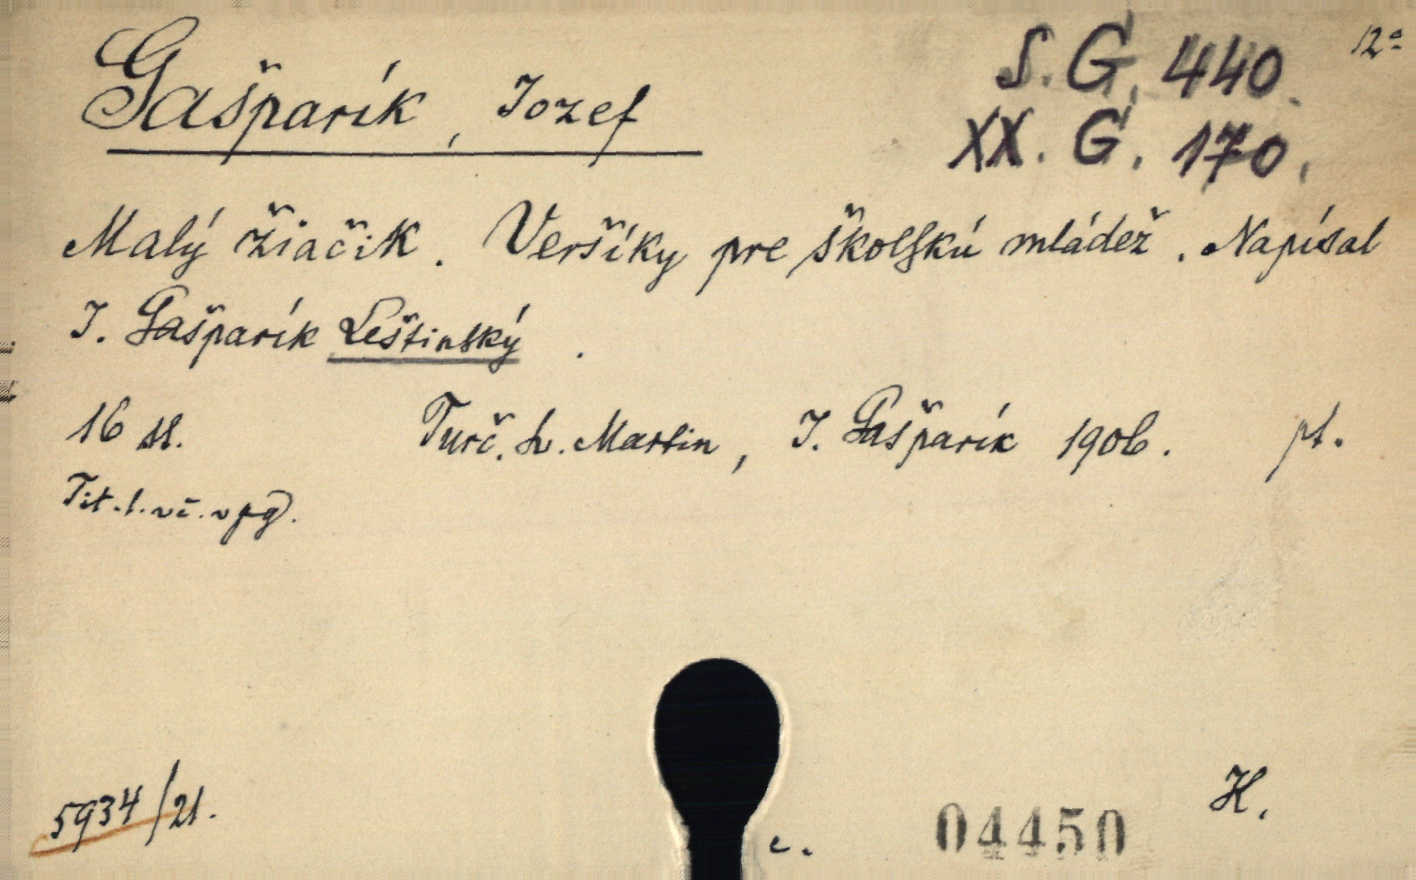 12°
S. G. 440.
Gašparík, Jozef
XX. G. 170.
Malý žiačik. Veršíky pre školskú mládež. Napísal
J. Gašparík Leštinský.
16 st. Turč. Sv. Martin, J. Gašparík 1906. pt.
Tit. l. vč. v pg.
5934/21.
c. 04450 H.